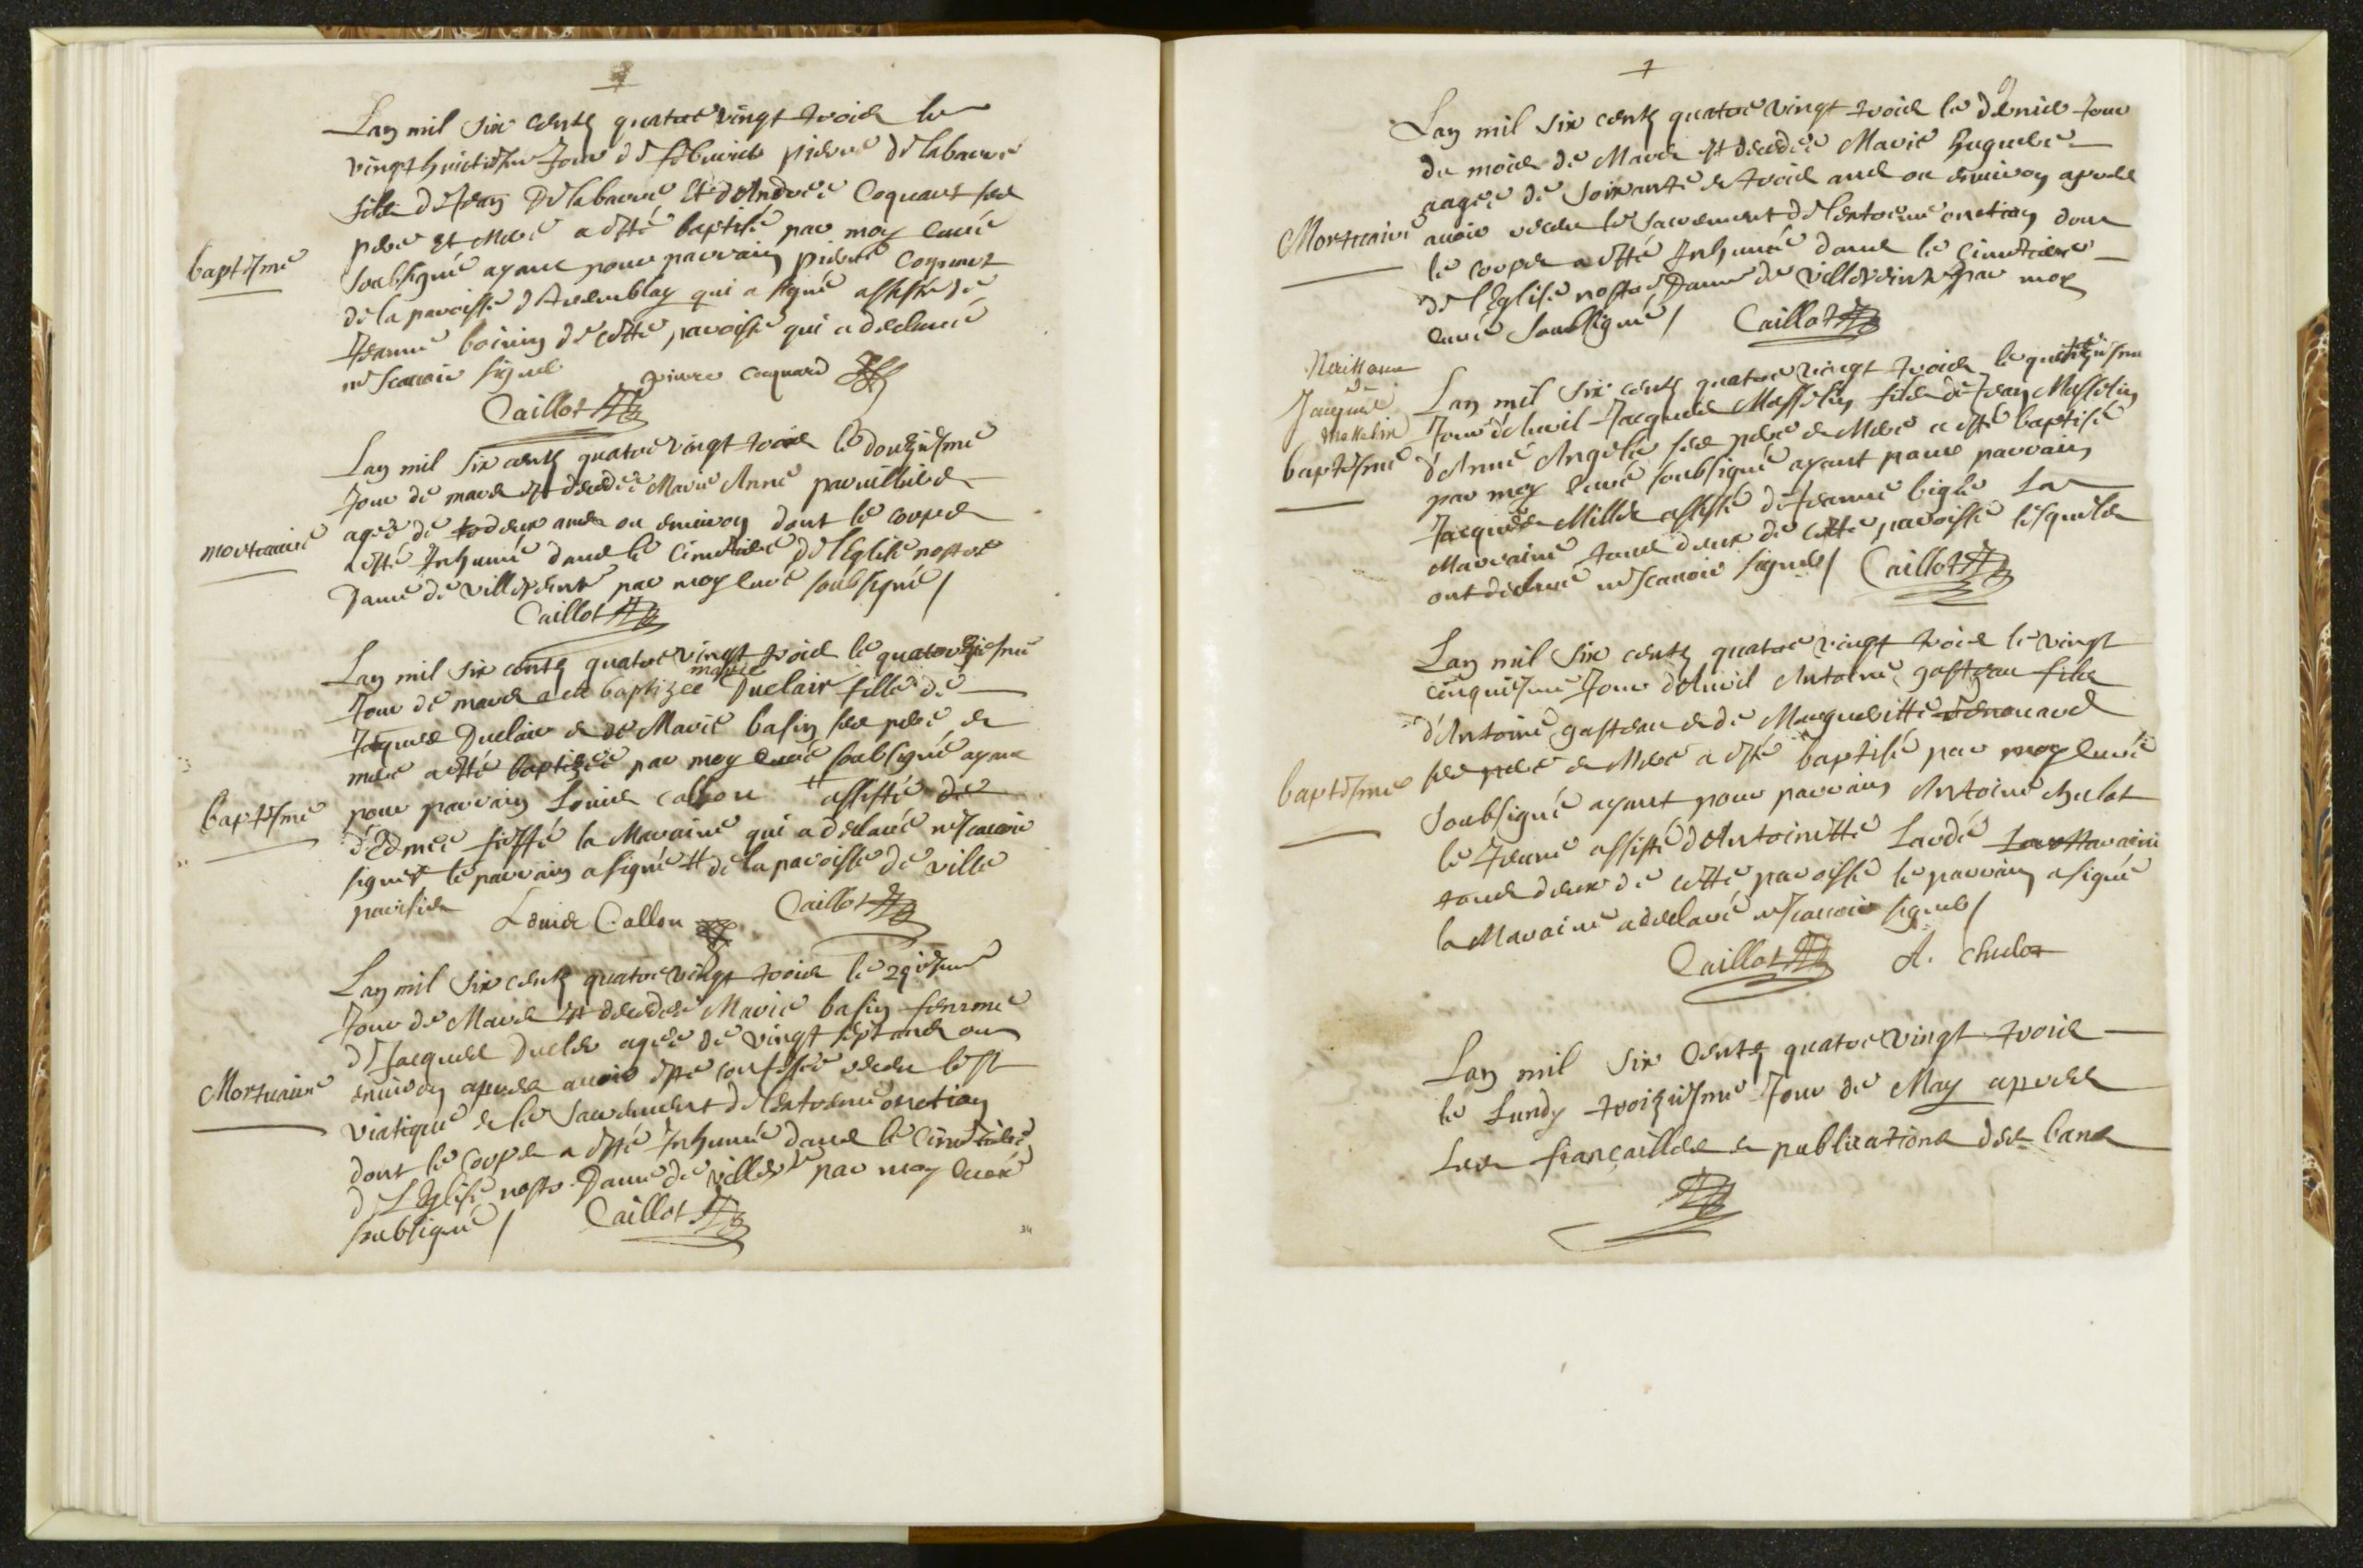 Lan mil six centz quatre vingt trois le
vingt huictiesme Jour de febvrier pierre delabarre
filz de Jean Delabarre Et d'Andrée Coquart ses
pere et Mere a esté baptisé par moy curé
baptesme
soubsigné ayant pour parrain pierre Coquart
de la paroisse d'Avremblay qui a signé assisté de
Jeanne boivin de cette paroisse qui a declaré
ne scavoir signer
pierre coquard
Caillot
Lan mil six centz quatre vingt trois le douziesme
Jour de mars est decedée Marie Anne
agée de deux ans ou environ dont le corps
mortuaire
a esté Inhumé dans le Cimetiere de l'Eglise nostre
Dame de par moy curé soubsigné /
Caillot
Lan mil six centz quatre vingt trois le quatorziesme
marie
Jour de mars a ete baptizee Duclair fille de
Jacques Duclair & de Marie basin ses pere &
mere a esté baptizée par moy curé soubsigné ayant
baptesme
pour parrain Louis Callou # assisté de
d'Edmée la Maraine qui a declaré ne scavoir
signer le parrain a signé # de la paroisse de ville
parisis
Louis Callou Caillot
Lan mil six centz quatre vingt trois le 29iesme
Jour de Mars est decedée Marie basin femme
de Jacques Ducler agée de vingt sept ans ou
Mortuaire
environ apres avoir esté confessée receu le St
viatique & le Sacrement de l'extreme onction
dont le corps a esté Inhumé dans le Cimetiere
de l'Eglise nostre Dame de par moy curé
soubsigné / Caillot
34
Lan mil six centz quatre vingt trois le dernier Jour
du mois de Mars est decedée Marie huguelin
aagée de soixante & trois ans ou environ apres
Mortuaire
avoir receu le Sacrement de l'extreme onction dont
le corps a esté Inhumé dans le Cimetiere
de l'Eglise nostre Dame de par moy
curé soubsigné / Caillot
Naissance
de
Jacques
Masselin
baptesme
Lan mil six centz quatre vingt trois le
Jour d'Avril Jacques Masselin filz de Jean Masselin
d'Anne Angele ses pere & Mere a esté baptisé
par moy curé soubsigné ayant pour parrain
Jacques Millet assisté de Jeanne bigle La
Marraine tous deux de cette paroisse lesquels
ont declaré ne scavoir signer / Caillot
Lan mil six centz quatre vingt trois le vingt
cinquiesme Jour d'Avril Antoine gasteau filz
d'Antoine gasteau & de Margueritte renouard
baptesme
ses pere & Mere a esté baptisé par moy curé
soubsigné ayant pour parrain Antoine chulot
le Jeune assisté d'Antoinette La Maraine
tous deux de cette paroisse le parrain a signé
la Maraine a declaré ne scavoir signer /
Caillot A. chulot
Lan mil six Centz quatre vingt trois
le Lundy troiziesme Jour de May apres
Les fiançailles & publications des bans